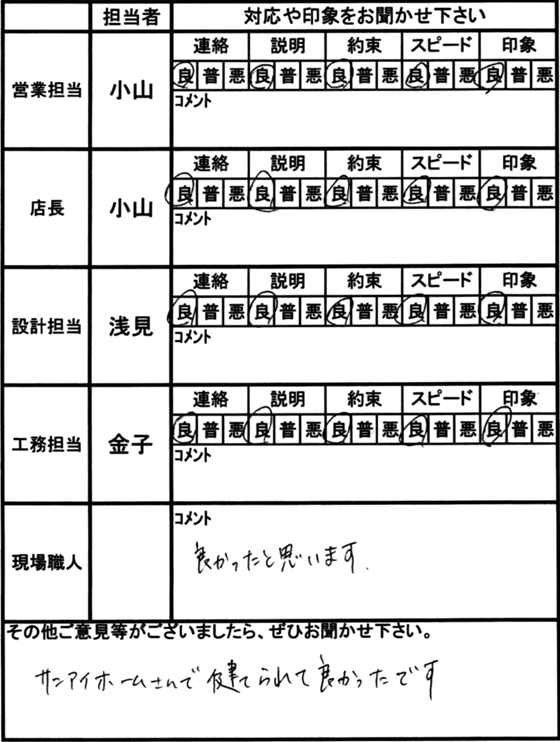 担当者 対応や印象をお聞かせ下さい
営業担当 小山
連絡 説明 約束 スピード 印象
良 普 悪 良 普 悪 良 普 悪 良 普 悪 良 普 悪
コメント
店長 小山
連絡 説明 約束 スピード 印象
良 普 悪 良 普 悪 良 普 悪 良 普 悪 良 普 悪
コメント
設計担当 浅見
連絡 説明 約束 スピード 印象
良 普 悪 良 普 悪 良 普 悪 良 普 悪 良 普 悪
コメント
工務担当 金子
連絡 説明 約束 スピード 印象
良 普 悪 良 普 悪 良 普 悪 良 普 悪 良 普 悪
コメント
現場職人
コメント
良かったと思います.
その他ご意見等がございましたら、ぜひお聞かせ下さい。
サンアイホームさんで建てられて良かったです